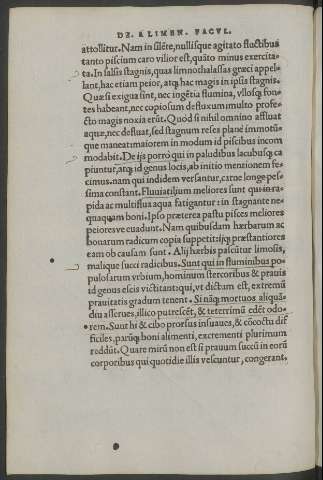 DE ALIMEN. FACVL.
attollitur. Nam in silēte, nullisque agitato fluctibus
tanto piscium caro vilior est, quāto minus exercita-
ta. In salsis stagnis, quas limnothalassas græci appel-
lant, hac etiam peior, atq; hac magis in ipsis stagnis.
Quæ si exigua sint, nec ingētia flumina, vllosq; fon-
tes habeant, nec copiosum defluxum multo profe-
cto magis noxia erūt. Quod si nihil omnino affluat
aquæ, nec defluat, sed stagnum reses plane immotū-
que maneat: maiorem in modum id piscibus incom
modabit. De ijs porrò qui in paludibus lacubusq; ca
piuntur, atq; id genus locis, ab initio mentionem fe-
cimus. nam qui indidem versantur, carne longe pes-
sima constant. Fluuiatilium meliores sunt qui in ra-
pida ac multiflua aqua fatigantur: in stagnante ne-
quaquam boni. Ipso præterea pastu pisces meliores
peioresve euadunt. Nam quibusdam hærbarum ac
bonarum radicum copia suppetit: ijq; præstantiores
eam ob causam sunt. Alij hærbis pascūtur limosis,
malique succi radicibus. Sunt qui in fluminibus po-
pulosarum vrbium, hominum stercoribus & prauis
id genus escis victitant: qui, vt dictum est, extremū
prauitatis gradum tenent. Si nāq; mortuos aliquā-
diu asserues, illico putrescēt, & teterrimū edēt odo-
rem. Sunt hi & cibo prorsus insuaues, & cōcoctu dif
ficiles, parūq; boni alimenti, excrementi plurimum
reddūt. Quare mirū non est si prauum succū in eorū
corporibus qui quotidie illis vescuntur, congerant.